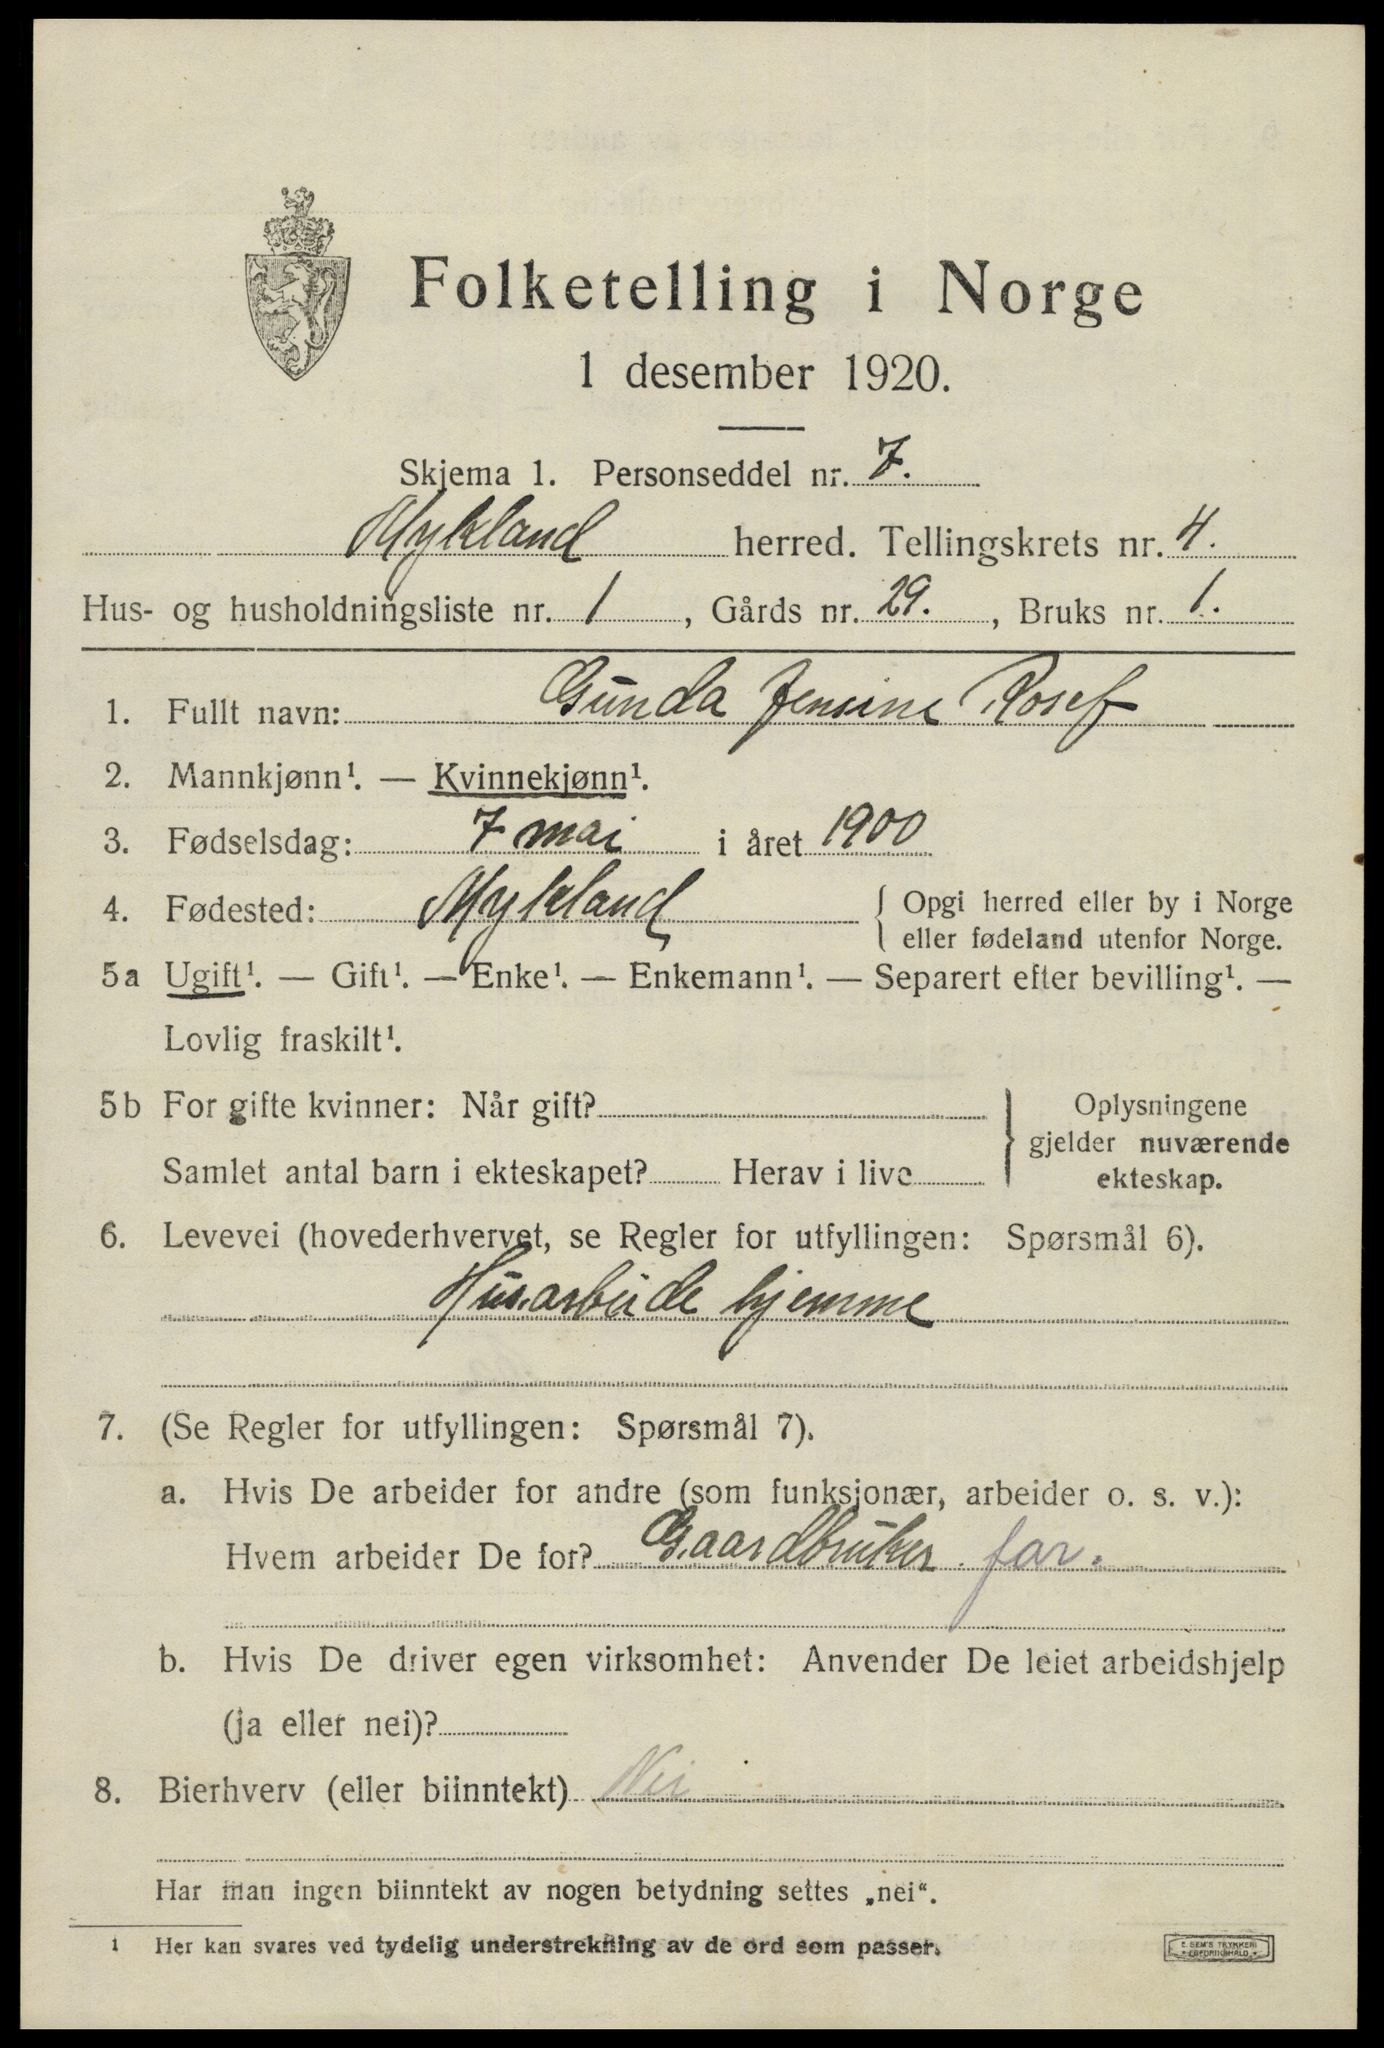 Folketelling i Norge
1 desember 1920.
Skjema 1. Personseddel nr. 7.
Mykland herred. Tellingskrets nr. 4.
Hus- og husholdningsliste nr. 1, Gårds nr. 29., Bruks nr. 1.
1. Fullt navn: Gunda Jensine Rosef
2. Mannkjønn¹. — Kvinnekjønn¹.
3. Fødselsdag: 7 mai i året 1900
4. Fødested: Mykland { Opgi herred eller by i Norge
eller fødeland utenfor Norge.
5a Ugift¹. — Gift¹. — Enke¹. — Enkemann¹. — Separert efter bevilling¹. —
Lovlig fraskilt¹.
5b For gifte kvinner: Når gift? } Oplysningene
gjelder nuværende
Samlet antal barn i ekteskapet? Herav i live ekteskap.
6. Levevei (hovederhvervet, se Regler for utfyllingen: Spørsmål 6).
Husarbeide hjemme
7. (Se Regler for utfyllingen: Spørsmål 7).
a. Hvis De arbeider for andre (som funksjonær, arbeider o. s. v.):
Hvem arbeider De for? Gaardbruker. far.
b. Hvis De driver egen virksomhet: Anvender De leiet arbeidshjelp
(ja eller nei)?
8. Bierhverv (eller biinntekt) Nei
Har man ingen biinntekt av nogen betydning settes „nei“.
1 Her kan svares ved tydelig understrekning av de ord som passer.
E. SEM'S TRYKKERI
FREDRIKSHALD